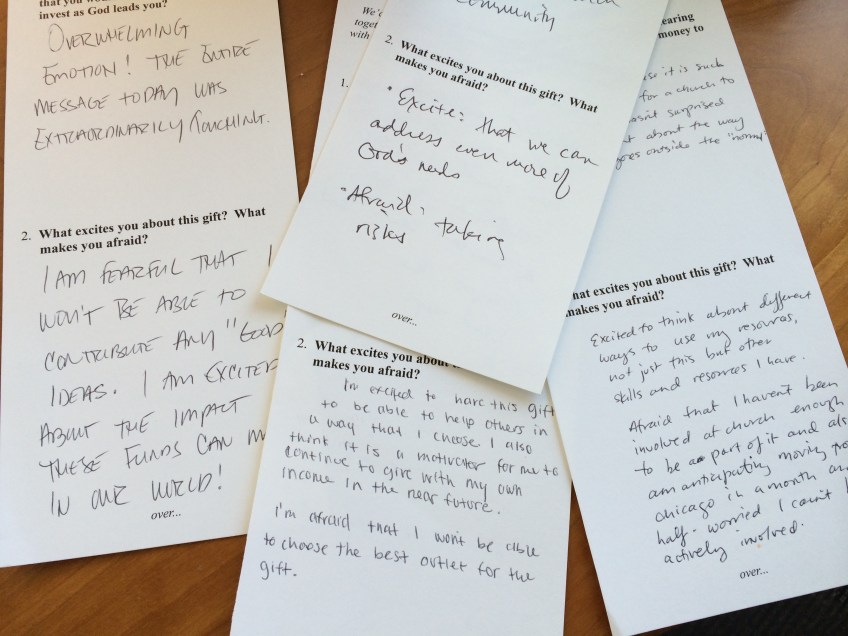 that you
invest as God leads you?
OVERWHELMING
EMOTION! THE ENTIRE
MESSAGE TODAY WAS
EXTRAORDINARILY TOUCHING.
2. What excites you about this gift? What
makes you afraid?
I AM FEARFUL THAT I
WON'T BE ABLE TO
CONTRIBUTE ANY "GOOD
IDEAS. I AM EXCITED
ABOUT THE IMPACT
THESE FUNDS CAN
IN OUR WORLD!
over...
We'
toget
with
1.
Community
2. What excites you about this gift? What
makes you afraid?
• Excite: that we can
address even more of
God's needs
• Afraid: taking
risks
over...
2. What excites you about
makes you afraid?
I'm excited to have this gift
to be able to help others in
a way that I choose I also
think it is a motivator for me to
continue to give with my own
income in the near future.
I'm afraid that I won't be able
to choose the best outlet for the
gift.
earing
money to
so it is such
for a church to
wasn't surprised
about the way
goes outside the "normal"
What excites you about this gift? What
makes you afraid?
Excited to think about different
ways to use my resources,
not just this but other
skills and resources I have.
Afraid that I haven't been
involved at church enough
to be a part of it and also
am anticipating moving
chicago in a month and
half- worried I can't
actively involved.
over...